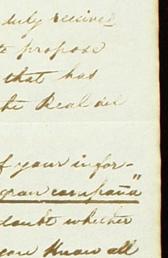 duly receive
to propose
that has
the Real del
of your infor-
gran compaña"
doubt whether
you know all